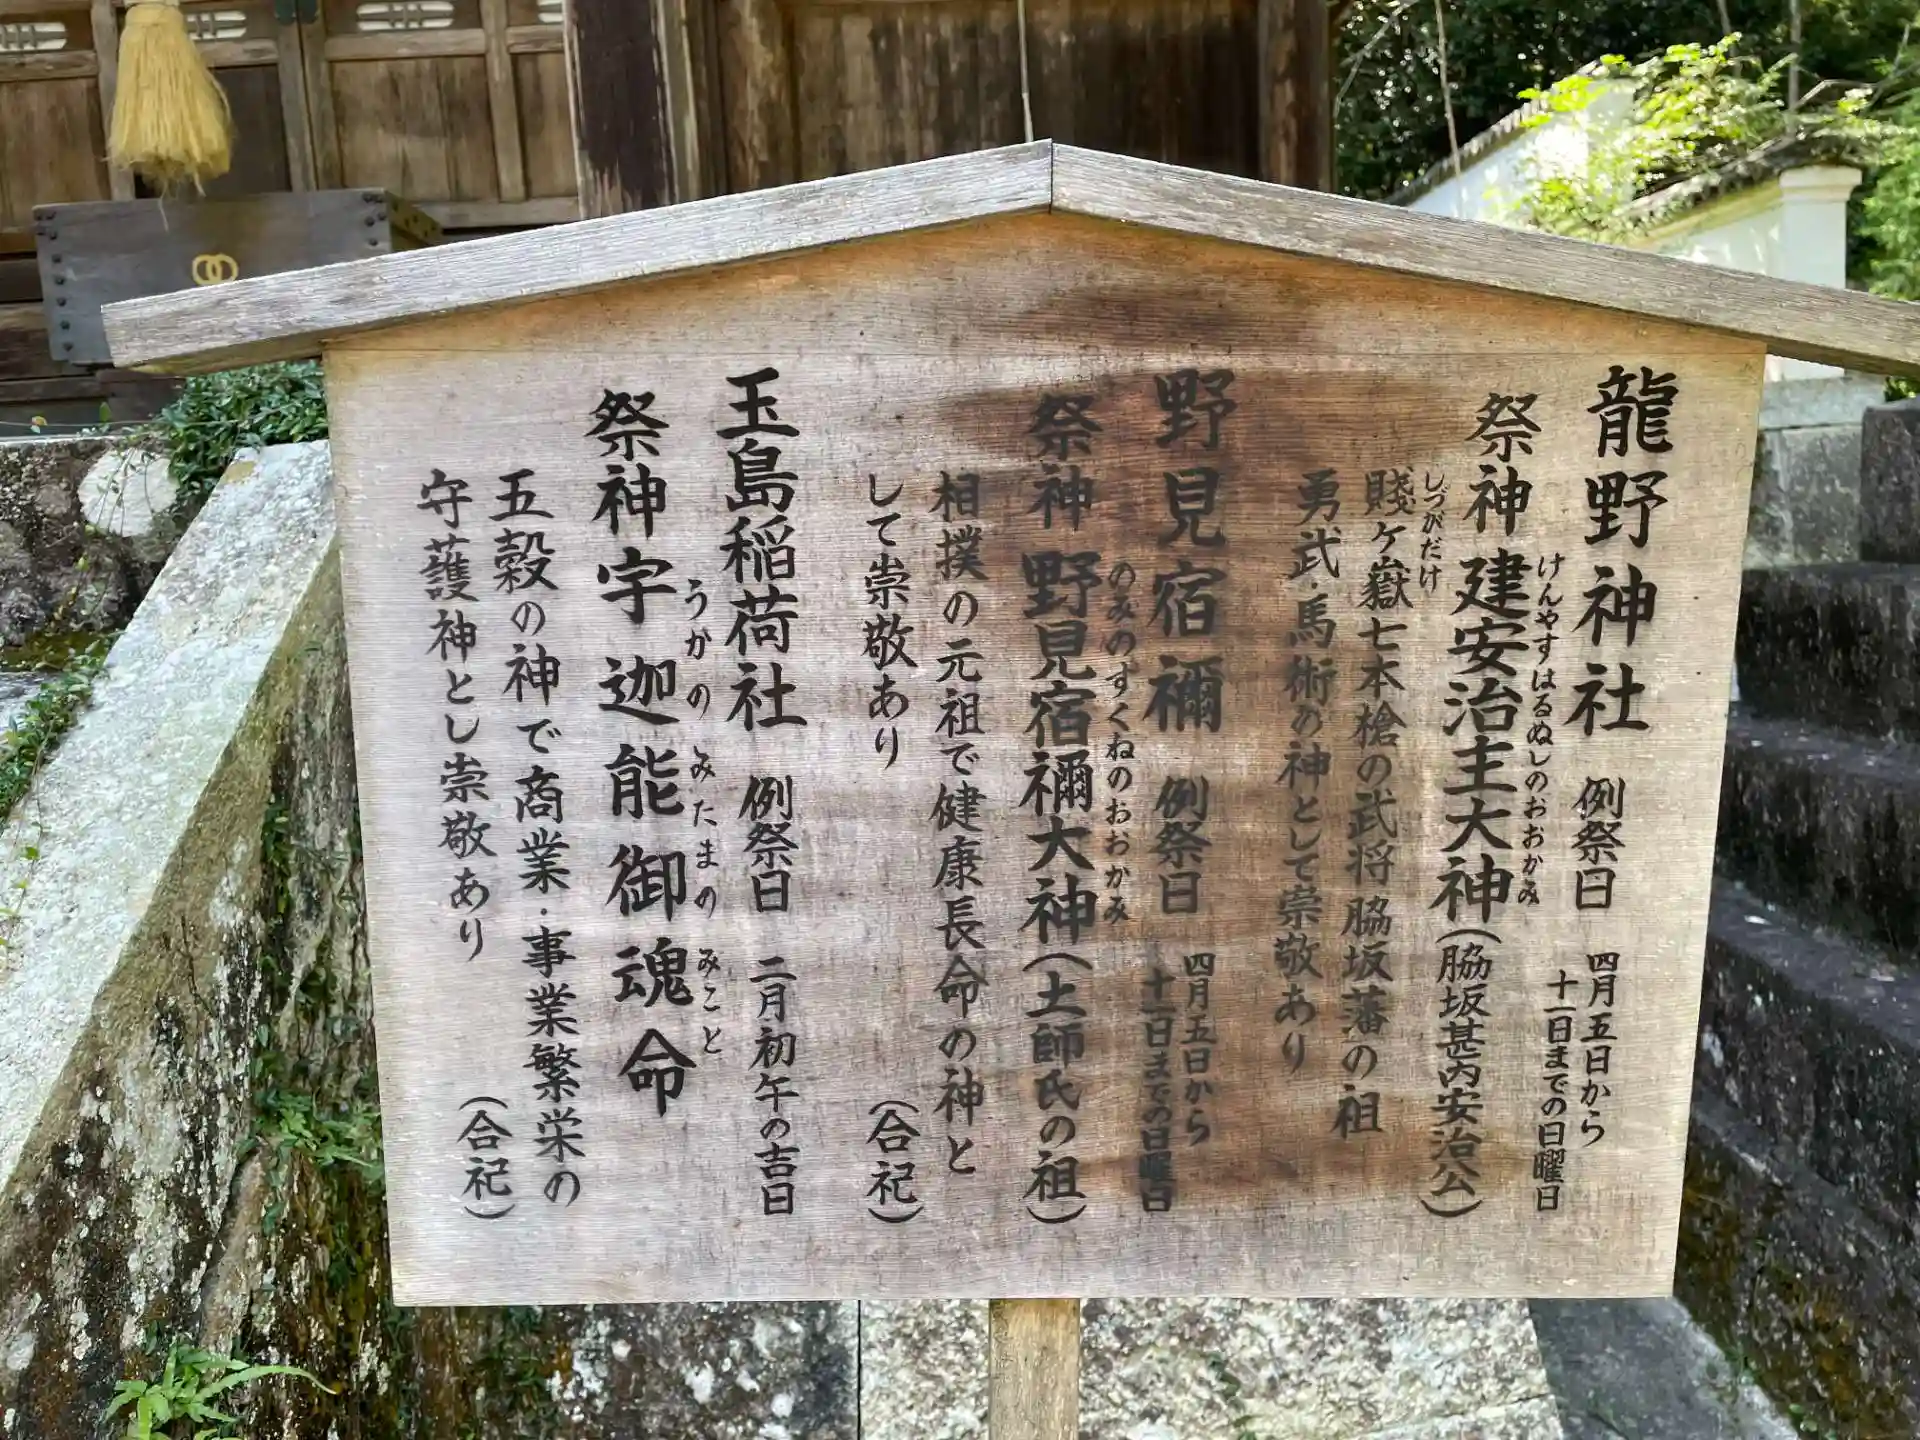 龍野神社 例祭日 四月五日から
十一日までの日曜日
けんやすはるぬしのおおかみ
祭神 建安治主大神(脇坂甚内安治公)
しづがだけ
賤ヶ嶽七本槍の武将脇坂藩の祖
勇武・馬術の神として崇敬あり
野見宿禰 例祭日 四月五日から
十一日までの日曜日
のみのすくねのおおかみ
祭神 野見宿禰大神(土師氏の祖)
相撲の元祖で健康長命の神と
して崇敬あり (合祀)
玉島稲荷社 例祭日 二月初午の吉日
うかの みたまの みこと
祭神 宇迦能御魂命
五穀の神で商業・事業繁栄の
守護神とし崇敬あり (合祀)